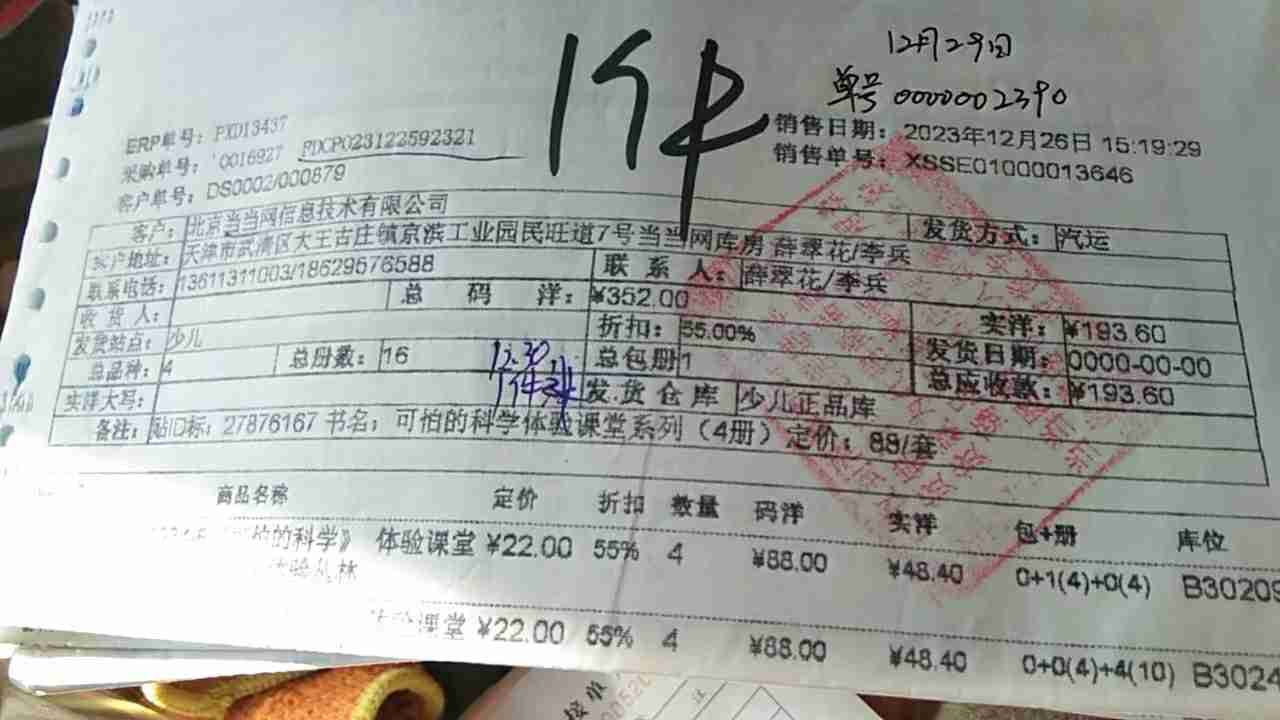 12月29日
1件
单号 0000002390
ERP单号: PXD13437
销售日期: 2023年12月26日 15:19:29
采购单号: '0016927 PDCP023122592321
销售单号: XSSE01000013646
客户单号: DS0002/000879
客户: 北京当当网信息技术有限公司 发货方式: 汽运
客户地址: 天津市武清区大王古庄镇京滨工业园民旺道7号当当网库房 薛翠花/李兵
联系电话: 13611311003/18629576588 联系人: 薛翠花/李兵
收货人: 总码洋: ¥352.00 实洋: ¥193.60
发货站点: 少儿 折扣: 55.00% 发货日期: 0000-00-00
总品种: 4 总册数: 16 总包册 1 总应收款: ¥193.60
12.30
1件
实洋大写: 发货仓库 少儿正品库
备注: 贴ID标: 27876167 书名: 可怕的科学体验课堂系列 (4册) 定价: 88/套
商品名称 定价 折扣 数量 码洋 实洋 包+册 库位
怕的科学》 体验课堂 ¥22.00 55% 4 ¥88.00 ¥48.40 0+1(4)+0(4) B30209
丛林
课堂 ¥22.00 55% 4 ¥88.00 ¥48.40 0+0(4)+4(10) B3024
接单